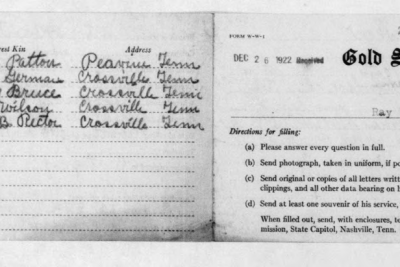 rest Kin Address
Patton Peavine Tenn
German Crossville Tenn
Bruce Crossville Tenn
Wilson Crossville Tenn
B. Rector Crossville Tenn
FORM W-W-1
DEC 26 1922 Received
Gold S
Ray
Directions for filling:
(a) Please answer every question in full.
(b) Send photograph, taken in uniform, if po
(c) Send original or copies of all letters writte
clippings, and all other data bearing on h
(d) Send at least one souvenir of his service,
When filled out, send, with enclosures, to
mission, State Capitol, Nashville, Tenn.